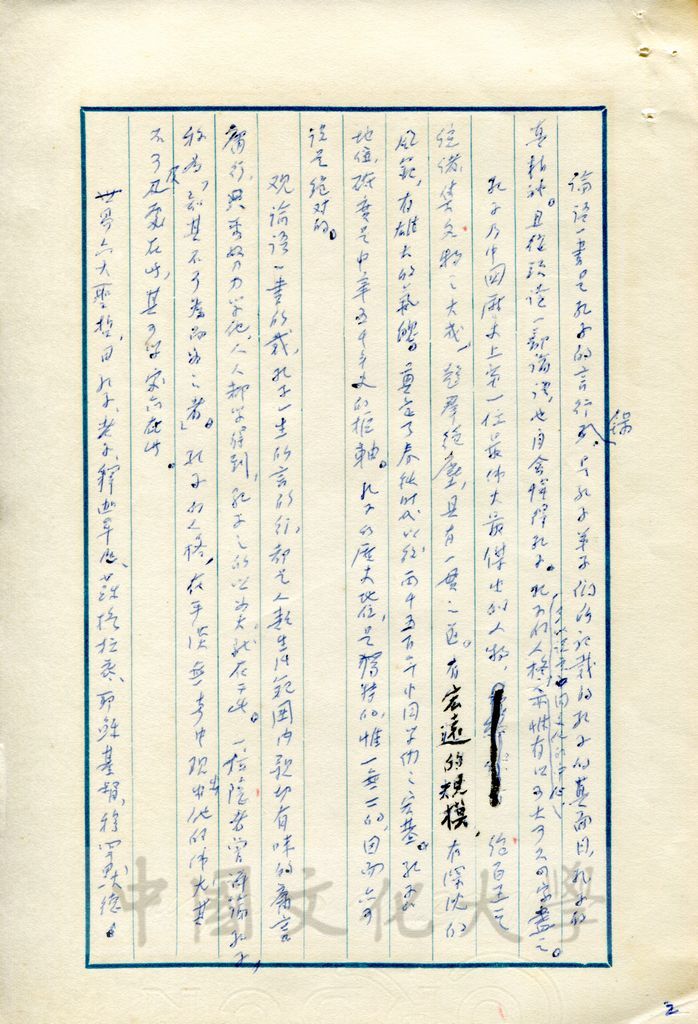 論語一書是孔子的言行錄,是孔子弟子們所記載的孔子的真面目,孔子的
真精神。且從頭讀一部論語,也自會懂得孔子。孔子的人格,
孔子乃中國歷史上第一位最偉大最傑出的人物,
統備集文物之大成,超羣絕塵,具有一貫之道。有宏遠的規模,有深沈的
風範,有雄大的氣魄,奠定了春秋時代以後兩千五百年中國學術之宏基。孔子的
地位,確實是中華五千年史的樞軸。孔子的歷史地位,是獨特的,惟一無二的,因而亦可
說是絕對的。
觀論語一書的載,孔子一生的言的行,都是人類生活範圍內親切有味的庸言
庸行,只要努力學他,人人都學得到,孔子之所以為大就在于此。一位隱者嘗譏諷孔子,
「知其不可為而為之者」。孔子的人格,在平淡無奇中現出他的偉大,其
不可及處在此,其可學處亦在此。
世界六大聖哲,由孔子、老子、釋迦牟尼、蘇格拉底、耶穌基督、穆罕默德。
中國文化大學
2